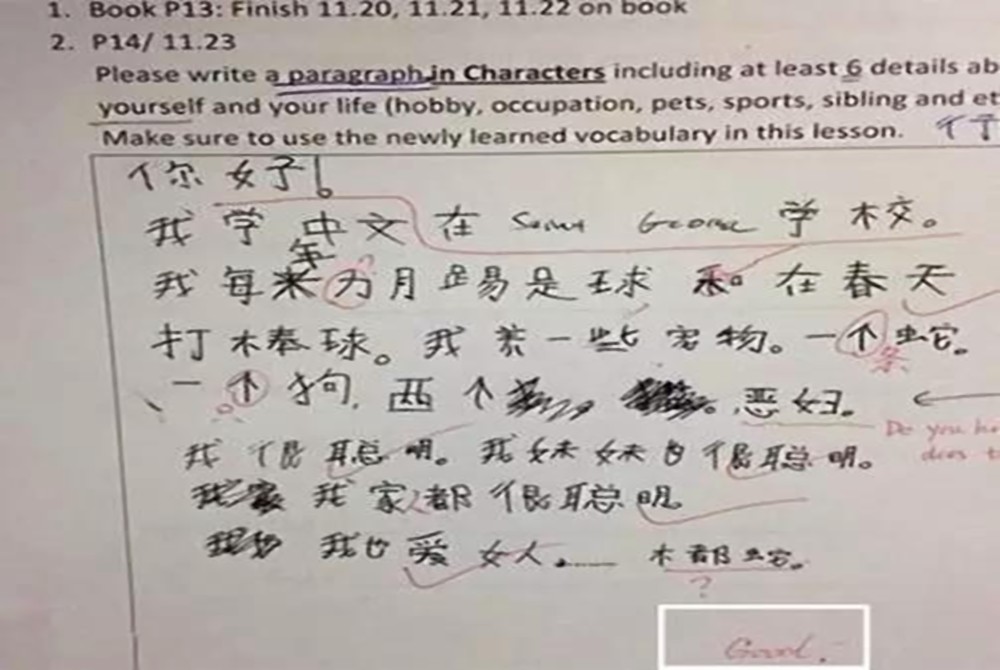 1. Book P13: Finish 11.20, 11.21, 11.22 on book
2. P14/ 11.23
Please write a paragraph in Characters including at least 6 details ab
yourself and your life (hobby, occupation, pets, sports, sibling and et
Make sure to use the newly learned vocabulary in this lesson.
你好!
我学中文在 学校。
年
我每 月踢足球 。在春天
打棒球。我养一些宠物。一个蛇。
条
一个狗, 个
Do you ha
does t
我很聪明。我妹妹也很聪明。
我家人都很聪明。
我也爱女人。
?
Good.